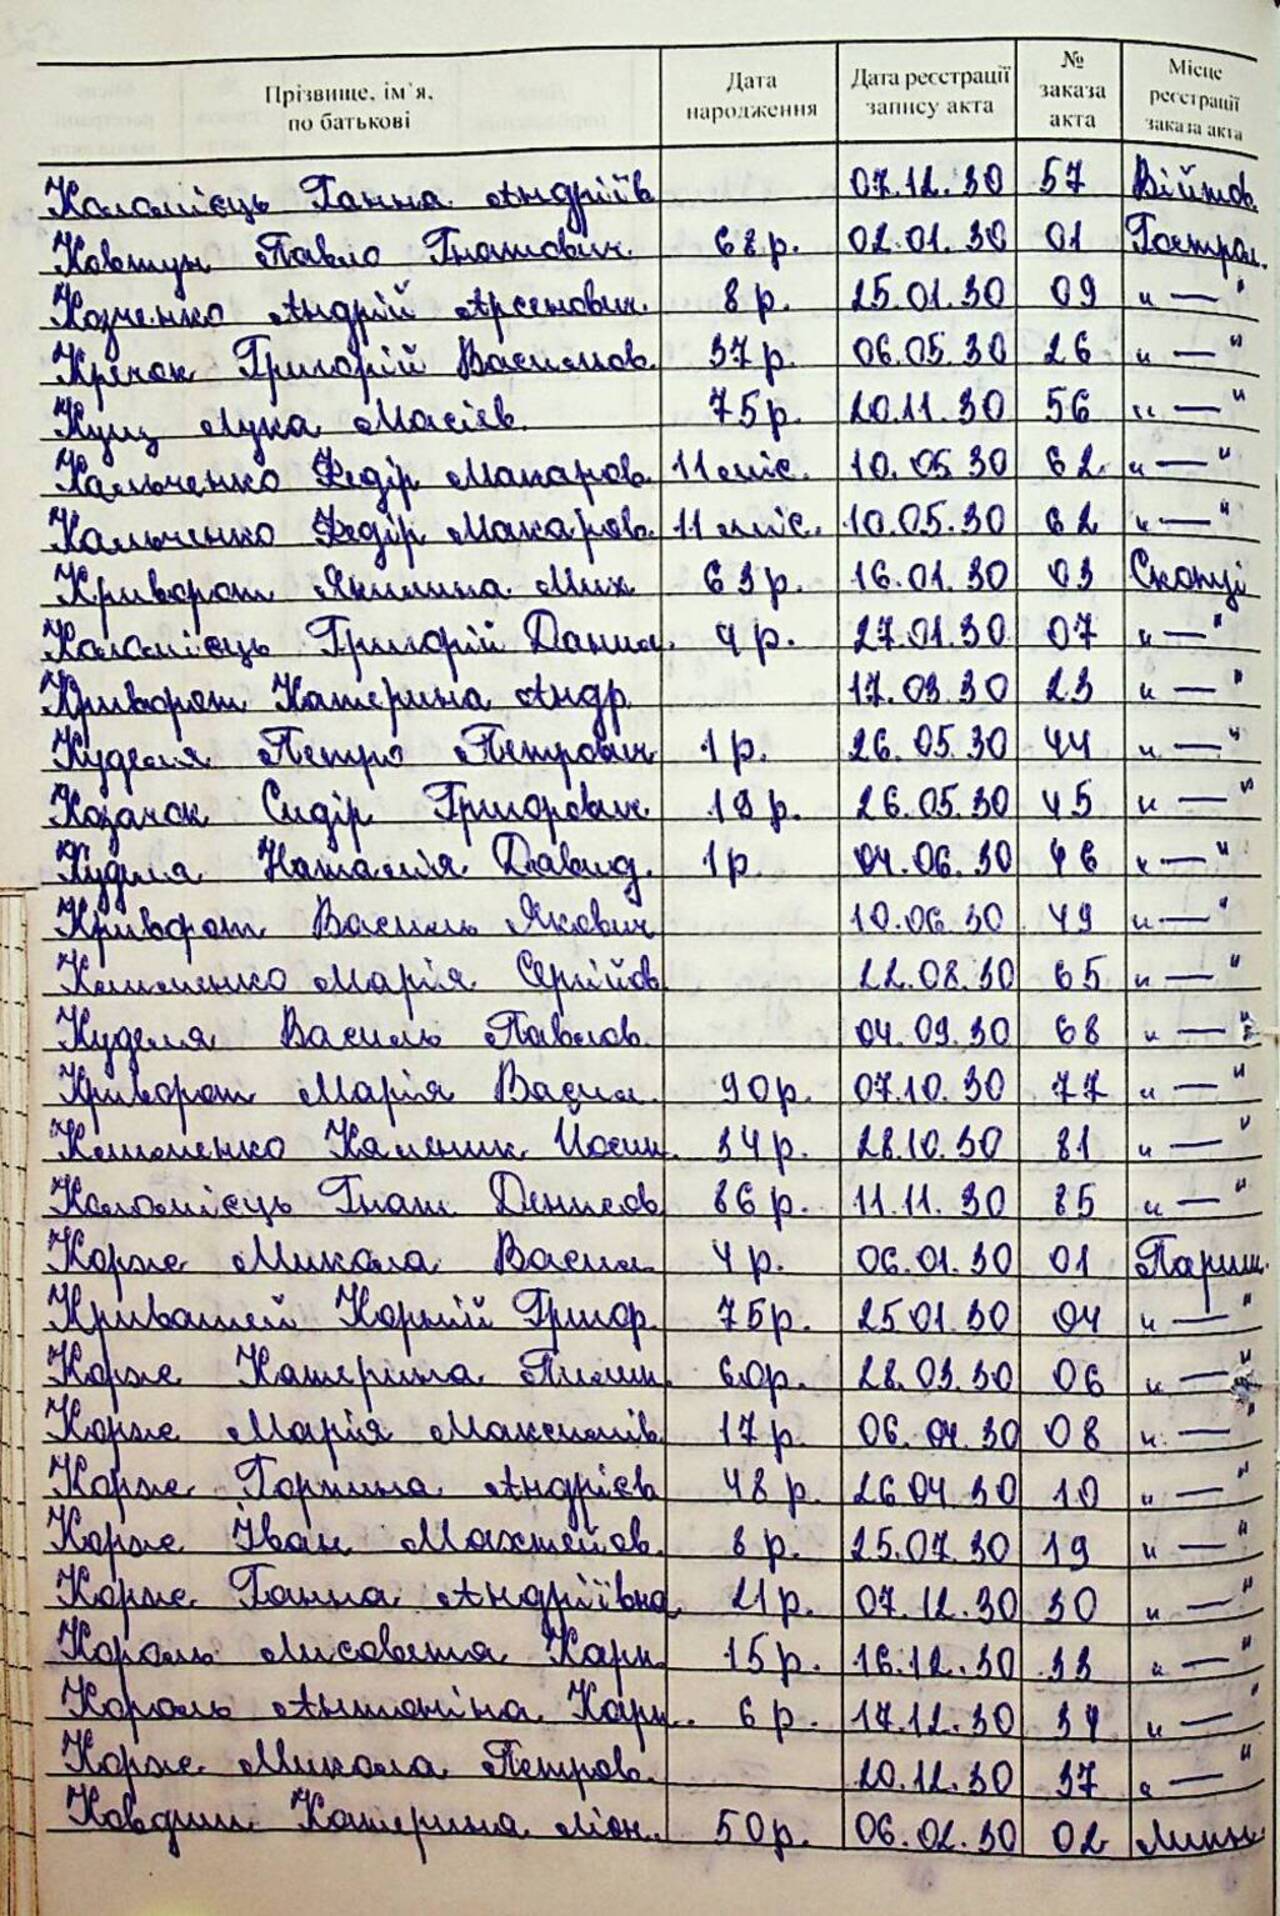 Прізвище, ім'я, по батькові Дата народження Дата реєстрації запису акта № заказа акта Місце реєстрації заказа акта
Коломієць Ганна Андріїв 07.12.30 57 Війтов.
Ковтун Павло Гнатович 68 р. 02.01.30 01 Гостро.
Козченко Андрій Арсенович 8 р. 25.01.30 09 "—"
Крячок Григорій Васильов. 37 р. 06.05.30 26 "—"
Кущ Лука Мосієв. 75 р. 20.11.30 56 "—"
Кальченко Федір Макаров. 11 міс. 10.05.30 62 "—"
Кальченко Федір Макаров. 11 міс. 10.05.30 62 "—"
Криворот Якилина Мих 63 р. 16.01.30 03 Скопці
Коломієць Григорій Данил. 9 р. 27.01.30 07 "—"
Криворот Катерина Андр. 17.03.30 23 "—"
Куделя Петро Петрович 1 р. 26.05.30 44 "—"
Козачок Сидір Григорович 19 р. 26.05.30 45 "—"
Куделя Наталія Давид. 1 р. 04.06.30 46 "—"
Криворот Василь Якович 10.06.30 49 "—"
Клименко Марія Сергійов 22.08.30 65 "—"
Куделя Василь Павлов. 04.09.30 68 "—"
Криворот Марія Васил. 90 р. 07.10.30 77 "—"
Клименко Калиник Йосип. 34 р. 28.10.30 81 "—"
Коломієць Гнат Денисов 86 р. 11.11.30 85 "—"
Корж Микола Васил. 4 р. 06.01.30 01 Париш.
Кривошей Корній Григор. 75 р. 25.01.30 04 "—"
Корж Катерина Пилип. 60 р. 28.03.30 06 "—"
Корж Марія Максимів. 17 р. 06.04.30 08 "—"
Корж Горпина Андрієв 48 р. 26.04.30 10 "—"
Корж Іван Мохтейов. 8 р. 25.07.30 19 "—"
Корж Ганна Андріївна 21 р. 07.12.30 30 "—"
Король Лисовета Карп. 15 р. 16.12.30 33 "—"
Король Антоніна Карп. 6 р. 17.12.30 34 "—"
Корж Микола Петров. 20.12.30 37 "—"
Катерина 50 р. 06.02.30 02